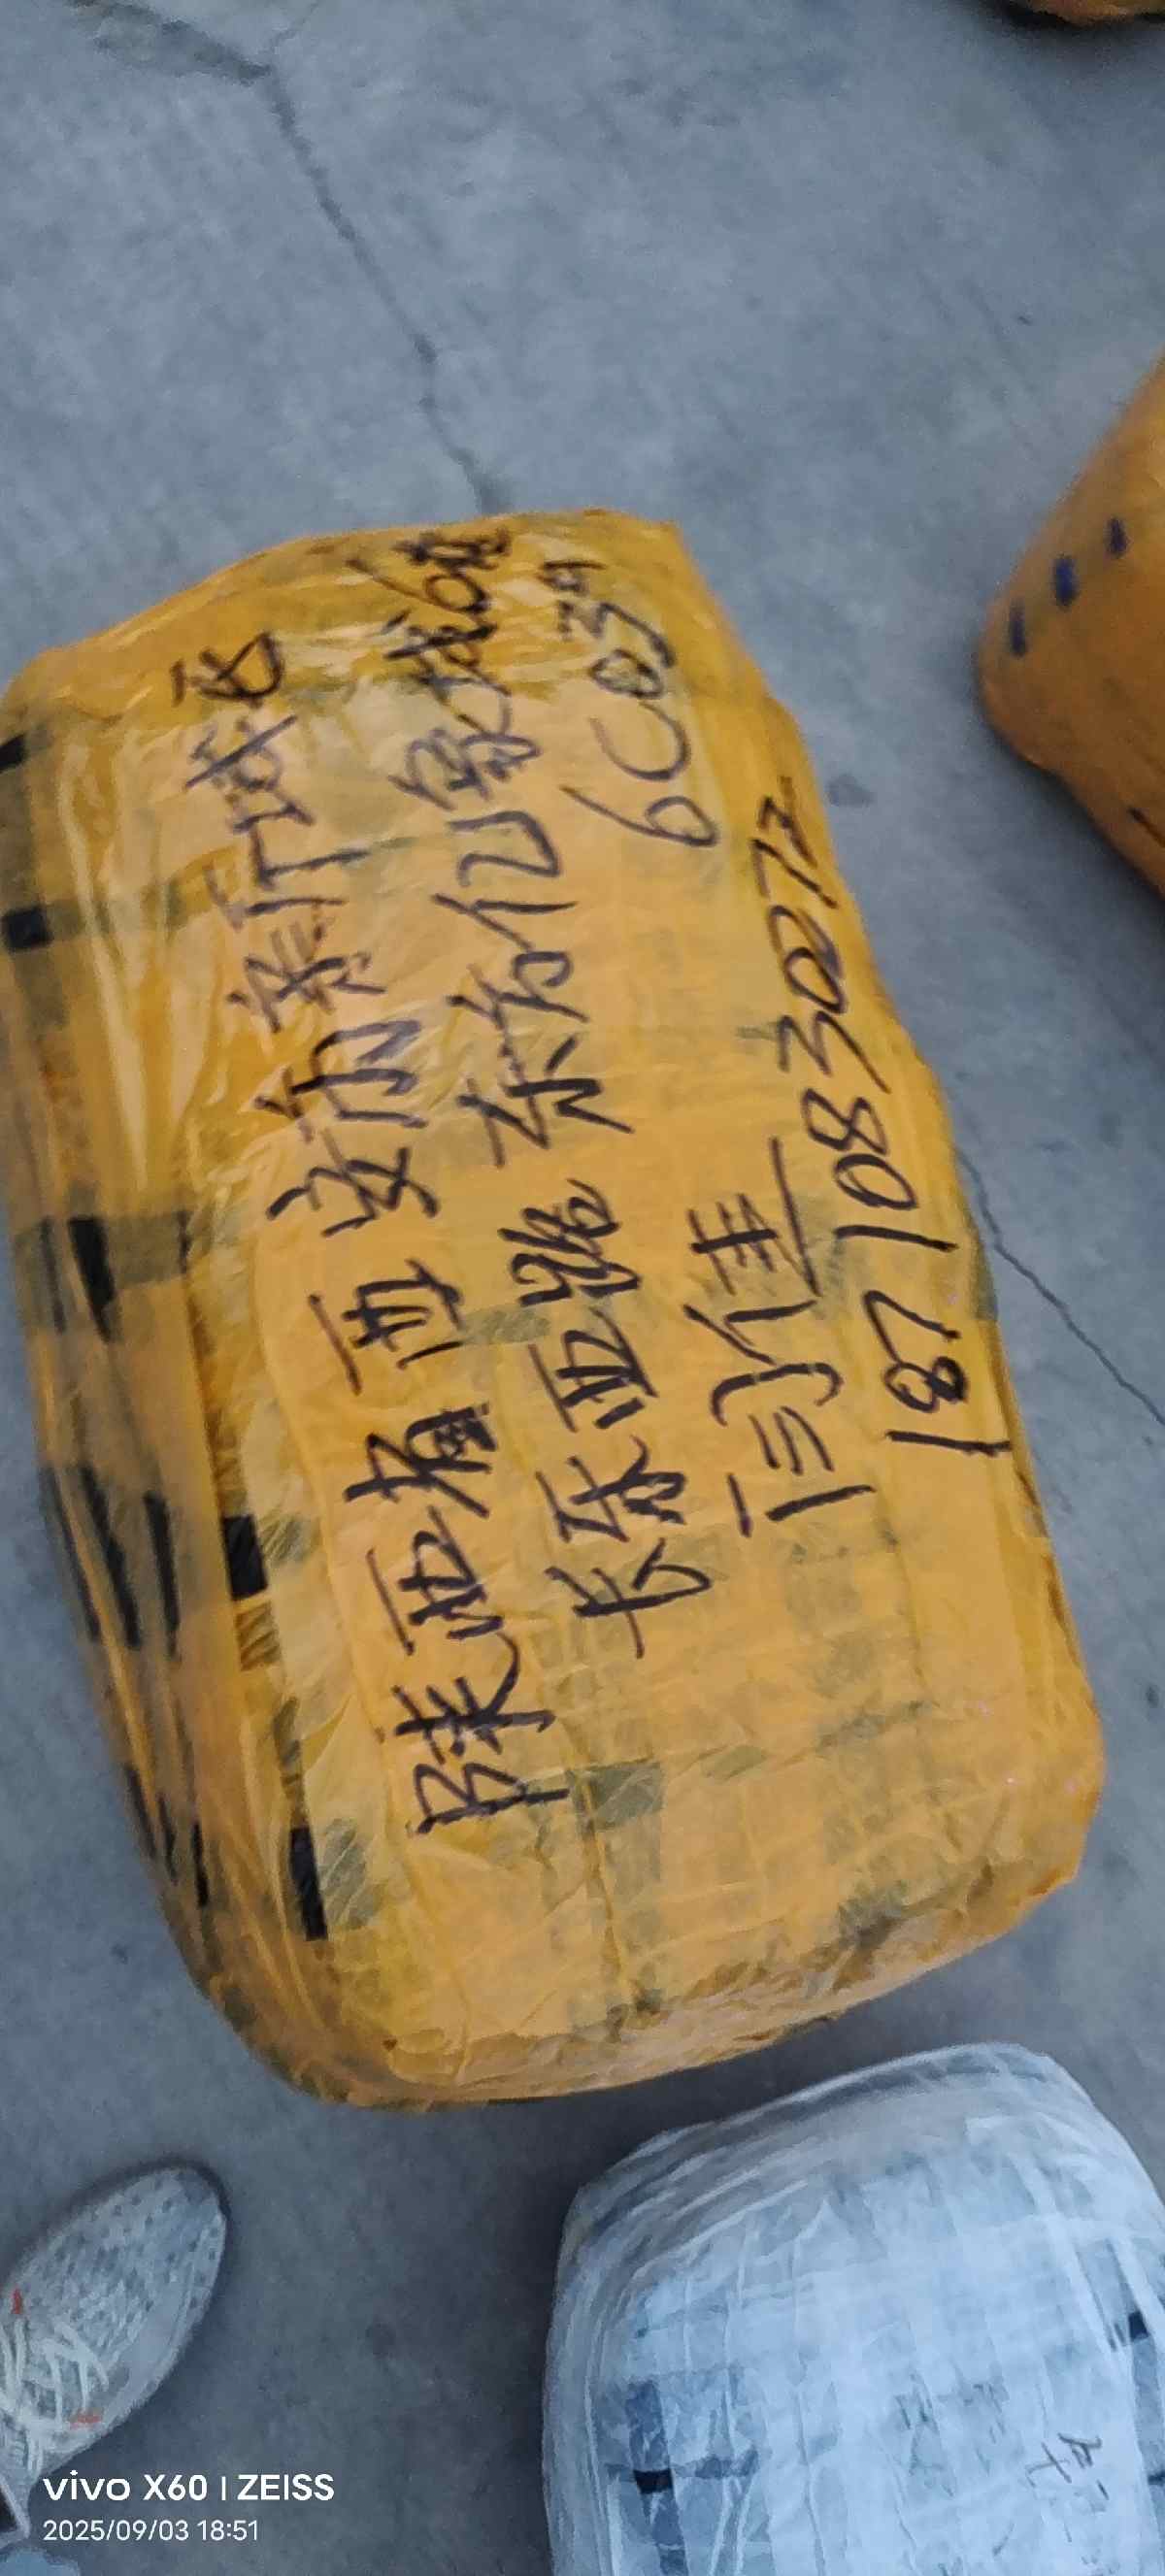 陕西省西安市新城区
长乐西路 东方亿象城6楼
6C03号
闫佳
187 108 30072
vivo X60 | ZEISS
2025/09/03 18:51